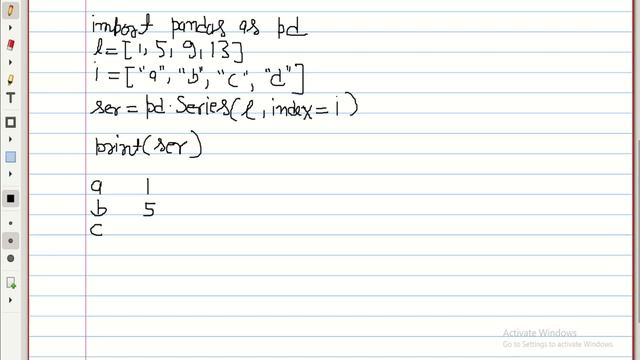 import pandas as pd
l=[1, 5, 9, 13]
i=["a", "b", "c", "d"]
ser=pd.Series(l, index=i)
print(ser)
a 1
b 5
c
Activate Windows
Go to Settings to activate Windows.